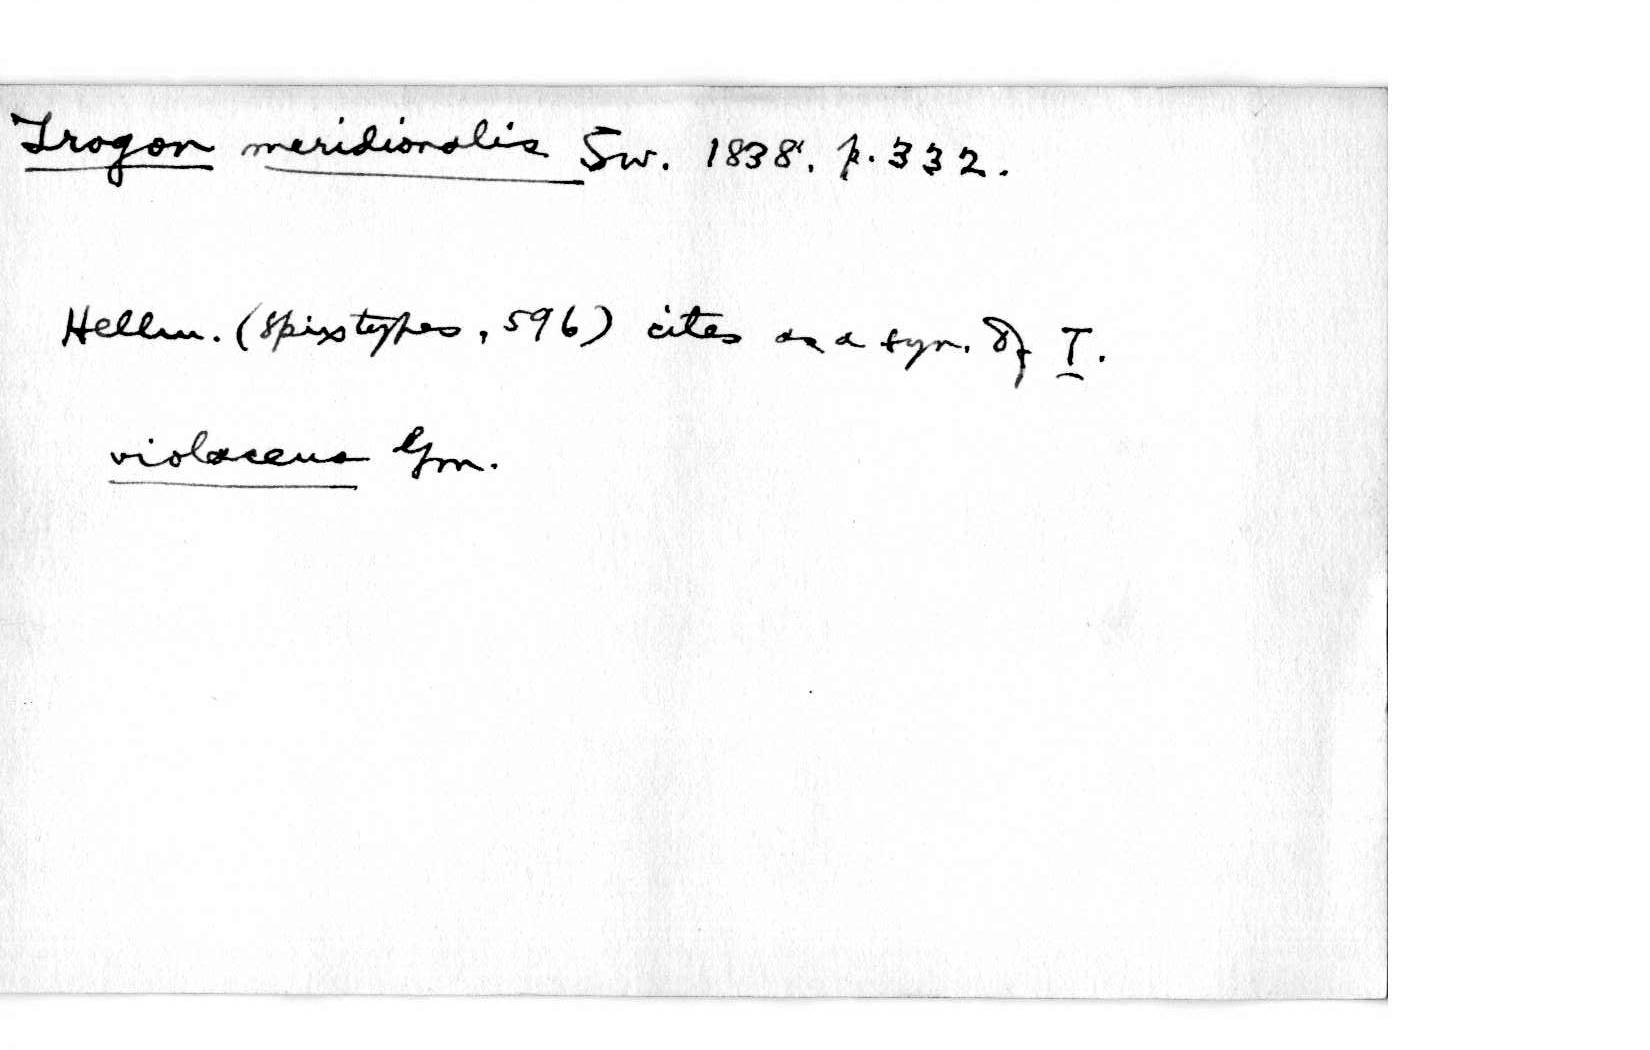 Trogon meridionalis Sw. 1838. p. 332.
Hellm. (Spix types, 596) cites as a syn. of T.
violaceus Gm.